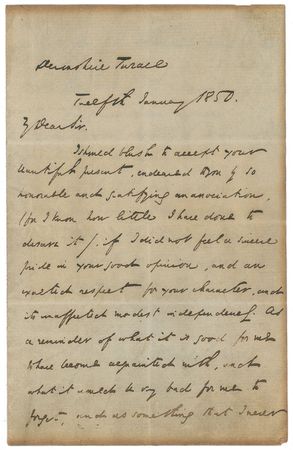 Devonshire Terrace
Twelfth January 1850.
My Dear Sir.
I should blush to accept your
beautiful present, endeared to me by so
honourable and gratifying an association,
(for I know how little I have done to
deserve it) if I did not feel a sincere
pride in your good opinion, and an
exalted respect for your character, and
its unaffected modest independence. As
a reminder of what it is good for me
to have become acquainted with, and
what it would be very bad for me to
forget, and as something that I never